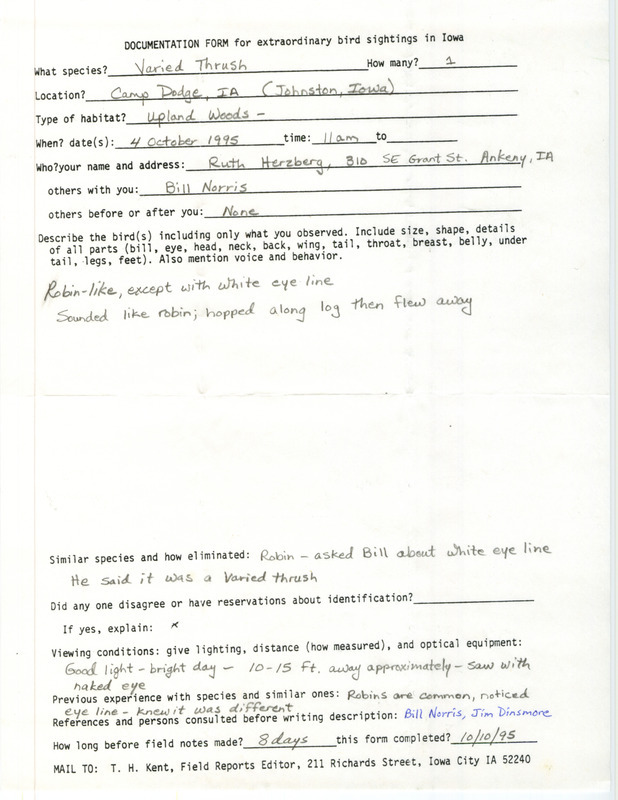 DOCUMENTATION FORM for extraordinary bird sightings in Iowa
What species? Varied Thrush How many? 1
Location? Camp Dodge, IA (Johnston, Iowa)
Type of habitat? Upland Woods -
When? date(s): 4 October 1995 time: 11am to
Who?your name and address: Ruth Herzberg, 310 SE Grant St. Ankeny, IA
others with you: Bill Norris
others before or after you: None
Describe the bird(s) including only what you observed. Include size, shape, details
of all parts (bill, eye, head, neck, back, wing, tail, throat, breast, belly, under
tail, legs, feet). Also mention voice and behavior.
Robin-like, except with white eye line
Sounded like robin; hopped along log then flew away
Similar species and how eliminated: Robin - asked Bill about white eye line
He said it was a Varied thrush
Did any one disagree or have reservations about identification?
If yes, explain:
Viewing conditions: give lighting, distance (how measured), and optical equipment:
Good light - bright day - 10-15 ft. away approximately - saw with
naked eye
Previous experience with species and similar ones: Robins are common, noticed
eye line - knew it was different
References and persons consulted before writing description: Bill Norris, Jim Dinsmore
How long before field notes made? 8 days this form completed? 10/10/95
MAIL TO: T. H. Kent, Field Reports Editor, 211 Richards Street, Iowa City IA 52240